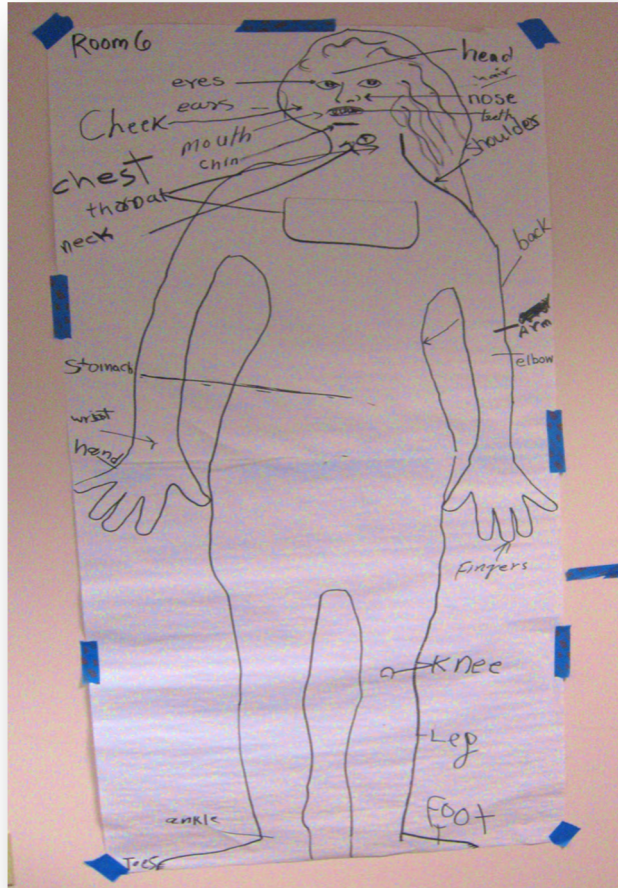 Room 6
head
hair
eyes
nose
ears
teeth
Cheek
mouth
shoulder
chin
chest
throat
neck
back
Arm
elbow
Stomach
wrist
hand
Fingers
Knee
Leg
Foot
ankle